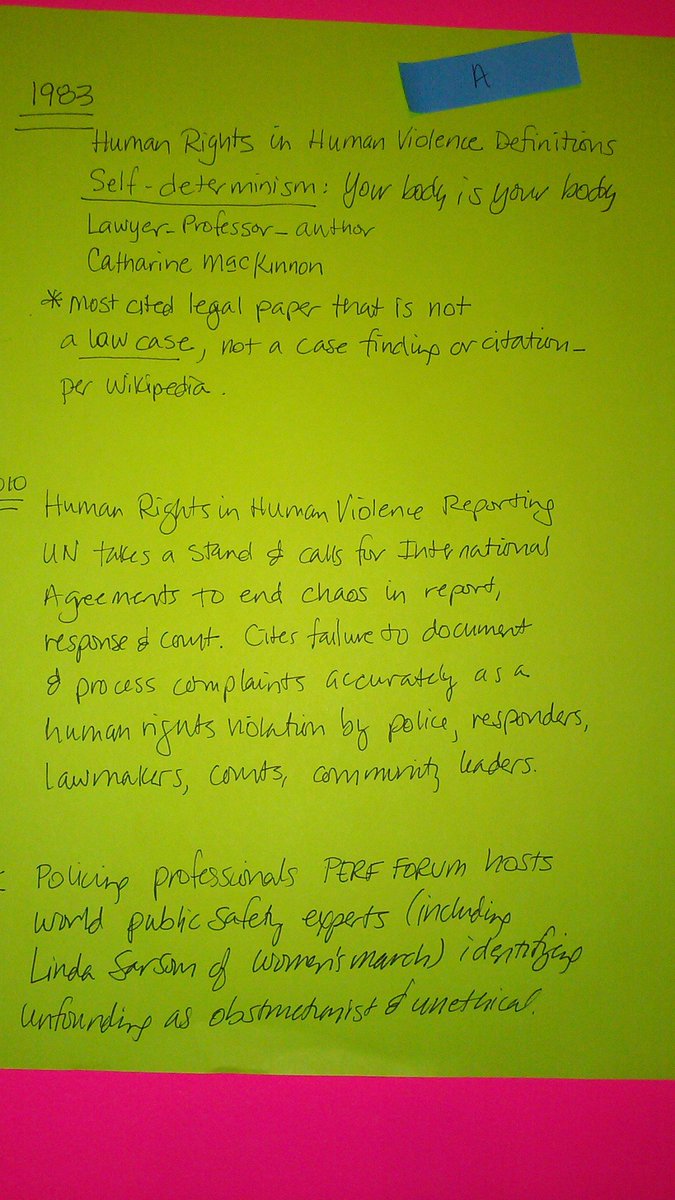 A
1983
Human Rights in Human Violence Definitions
Self-determinism: Your body is your body
Lawyer-Professor-author
Catharine MacKinnon
*most cited legal paper that is not
a law case, not a case finding or citation-
per Wikipedia.
010
Human Rights in Human Violence Reporting
UN takes a stand & calls for International
Agreements to end chaos in report,
response & count. Cites failure to document
& process complaints accurately as a
human rights violation by police, responders,
lawmakers, courts, community leaders.
Policing professionals PERF FORUM hosts
world public safety experts (including
Linda Sarsom of Women's march) identifying
unfounding as obstructionist & unethical.